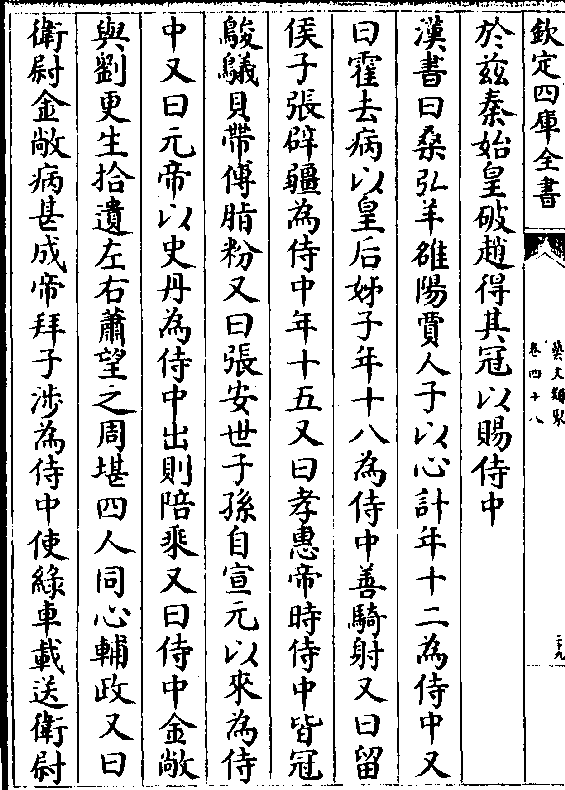 欽定四庫全書
藝文類聚
卷四十八
二九
於茲秦始皇破趙得其冠以賜侍中
漢書曰桑弘羊雒陽賈人子以心計年十二為侍中又
曰霍去病以皇后姊子年十八為侍中善騎射又曰留
侯子張辟疆為侍中年十五又曰孝惠帝時侍中皆冠
鵔鸃貝帶傅脂粉又曰張安世子孫自宣元以來為侍
中又曰元帝以史丹為侍中出則陪乘又曰侍中金敞
與劉更生拾遺左右蕭望之周堪四人同心輔政又曰
衛尉金敞病甚成帝拜子涉為侍中使綠車載送衛尉